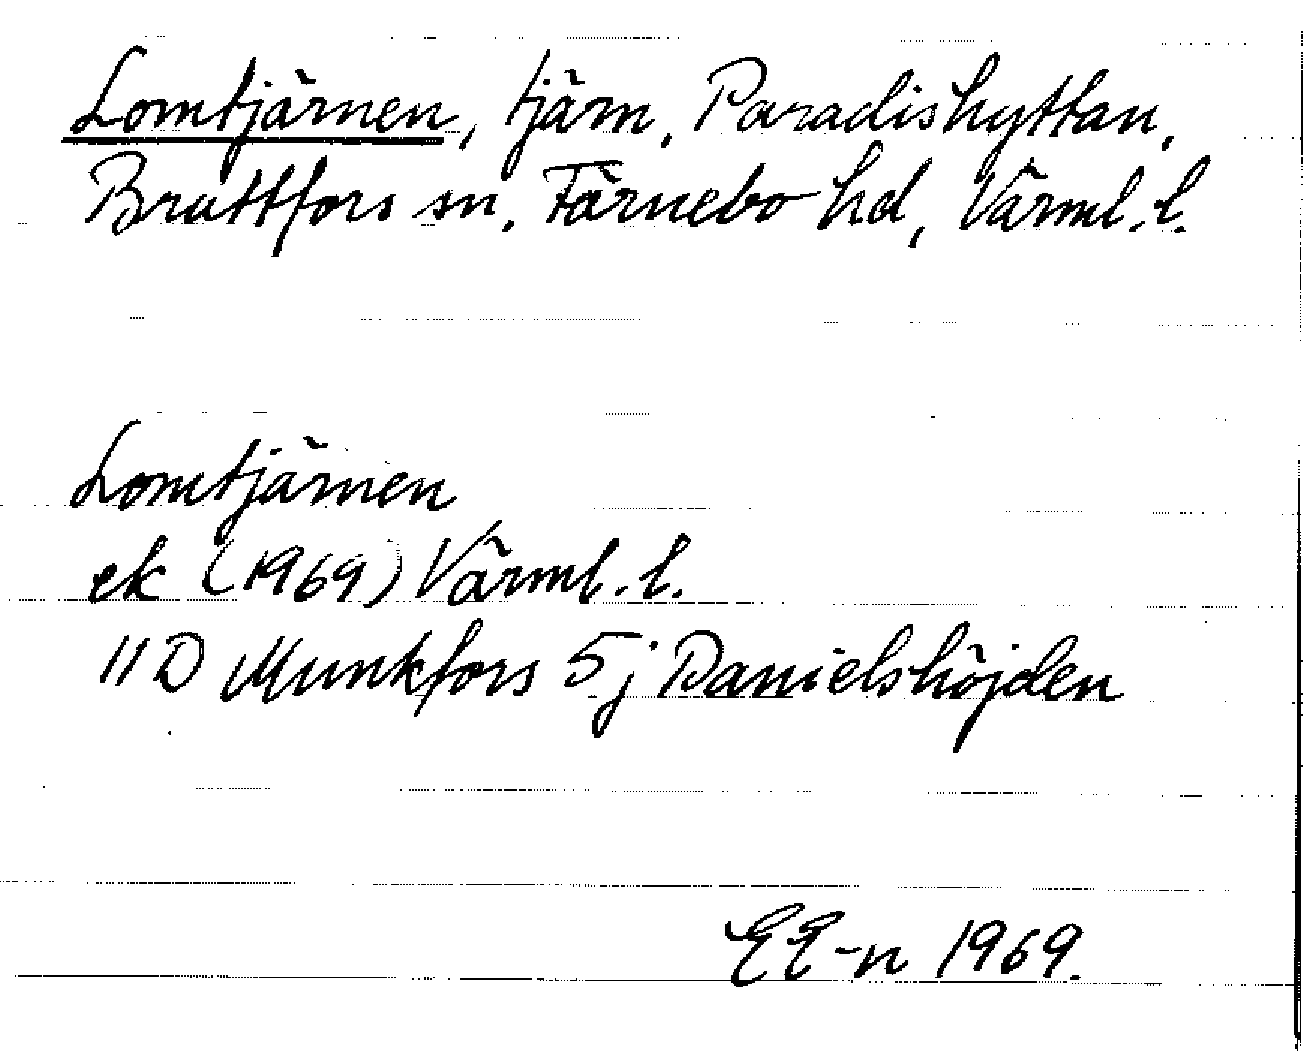 Lomtjärnen, tjärn, Paradishyttan,
Brattfors sn, Färnebo hd, Värml. l.
Lomtjärnen
ek (1969) Värml. l.
11 D Munkfors 5 j Danielshöjden
EE-n 1969.